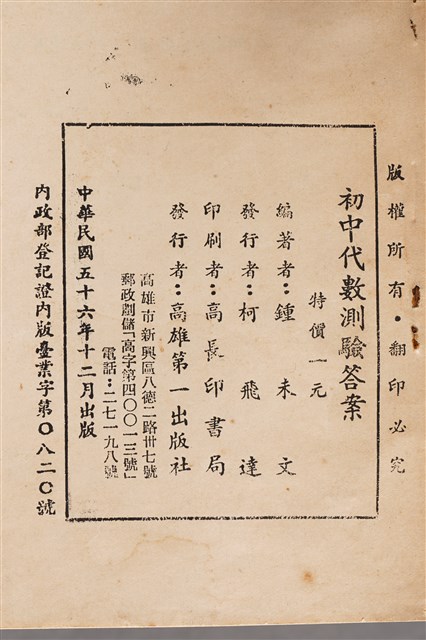 版權所有・翻印必究
初中代數測驗答案
特價一元
編著者：鍾未文
發行者：柯飛達
印刷者：高長印書局
發行者：高雄第一出版社
高雄市新興區八德二路卅七號
郵政劃儲「高字第四〇〇一三號」
電話：二七一九八號
中華民國五十六年十二月出版
內政部登記證內版臺業字第〇八二〇號